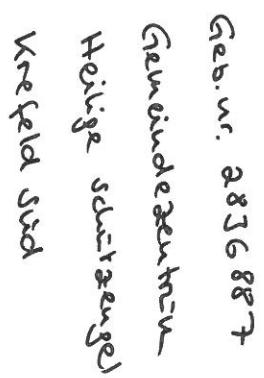 Geb.nr. 2836887
Gemeindezentrum
Heilige Schutzengel
Krefeld Süd